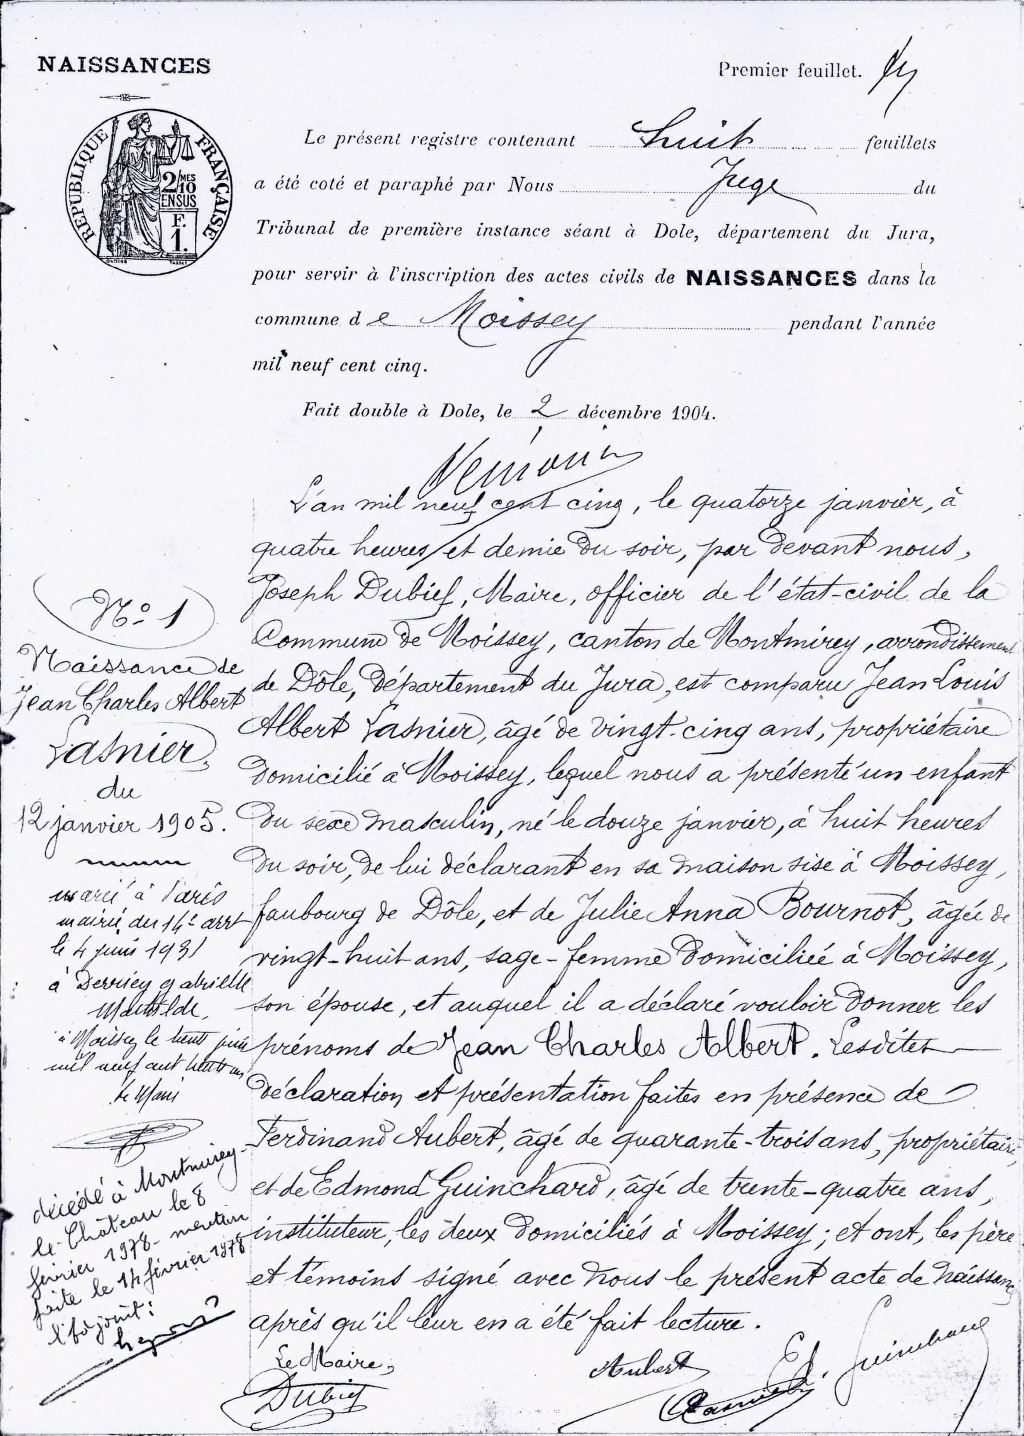 NAISSANCES
Premier feuillet.
RÉPUBLIQUE FRANÇAISE
2/MES
10
EN SUS
F.
1.
Le présent registre contenant huit feuillets
a été coté et paraphé par Nous Juge du
Tribunal de première instance séant à Dole, département du Jura,
pour servir à l'inscription des actes civils de NAISSANCES dans la
commune de Moissey pendant l'année
mil neuf cent cinq.
Fait double à Dole, le 2 décembre 1904.
L'an mil neuf cent cinq, le quatorze janvier, à
quatre heures et demie du soir, par devant nous,
Joseph Dubief, Maire, officier de l'état-civil de la
Commune de Moissey, canton de Montmirey, arrondissement
de Dôle, département du Jura, est comparu Jean Louis
Albert Lasnier, âgé de vingt-cinq ans, propriétaire
domicilié à Moissey, lequel nous a présenté un enfant
du sexe masculin, né le douze janvier, à huit heures
du soir, de lui déclarant en sa maison sise à Moissey,
faubourg de Dôle, et de Julie Anna Bournot, âgée de
vingt-huit ans, sage-femme domiciliée à Moissey,
son épouse, et auquel il a déclaré vouloir donner les
prénoms de Jean Charles Albert. Lesdites
déclaration et présentation faites en présence de
Ferdinand Aubert, âgé de quarante-trois ans, propriétaire,
et de Edmond Guinchard, âgé de trente-quatre ans,
instituteur, les deux domiciliés à Moissey; et ont, les père
et témoins signé avec nous le présent acte de naissance
après qu'il leur en a été fait lecture.
Le Maire,
Dubief
Aubert
Ed. Guinchard
No 1
Naissance de
Jean Charles Albert
Lasnier,
du
12 janvier 1905.
marié à Paris
mairie du 14e arrt
le 4 juin 1931
à Derriey Gabrielle
Mathilde.
à Moissey le huit juin
mil neuf cent trente un
le Maire
décédé à Montmirey-
le-Château le 8
février 1978 - mention
faite le 14 février 1978
l'adjoint: